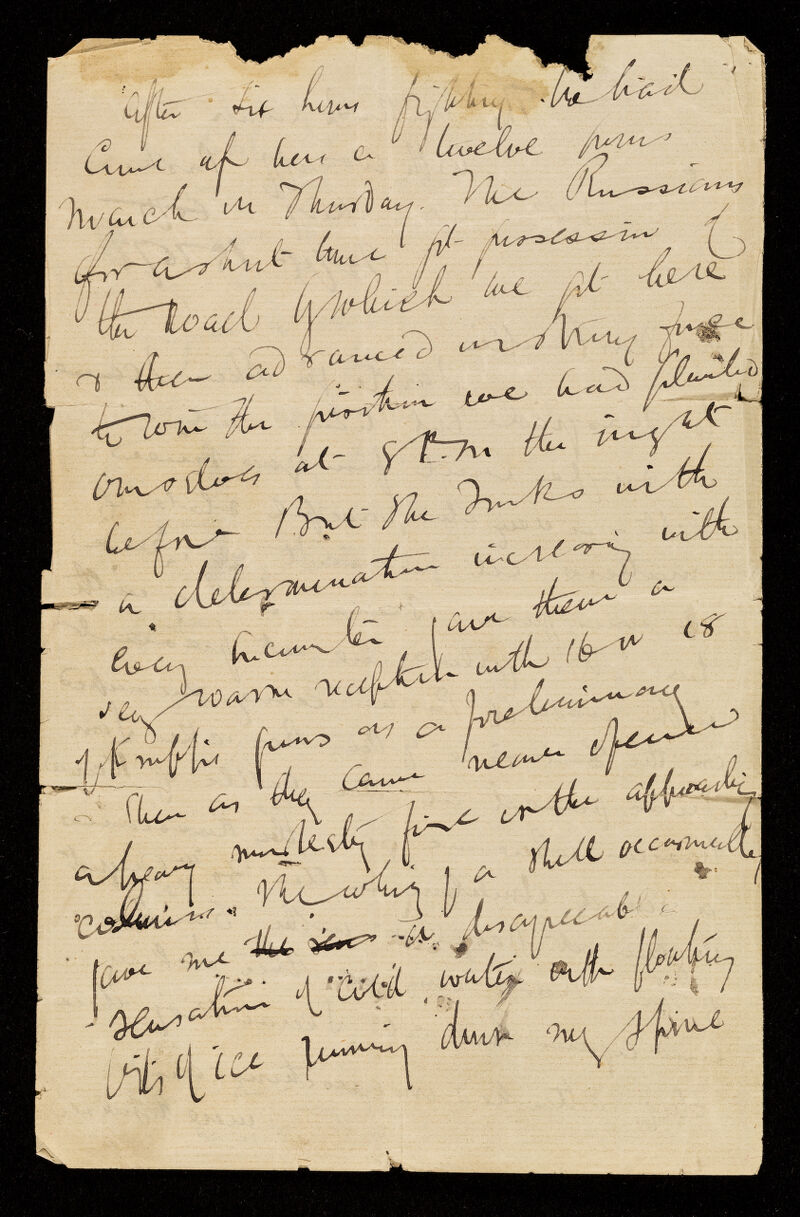 after six hours fighting. We had
Come up here a twelve hours
march on Thursday. The Russians
for a short time got possession of
the road by which we got here
& then advanced in strong force
to the position we had planted
ourselves at 8 P.M the night
before But the Turks with
a determination increasing with
every encounter gave them a
very warm reception with 16 or 18
of Krupps guns as a preliminary
& then as they came nearer opened
a heavy musketry fire on the approaching
columns. The whiz of a shell occasionally
gave me the a disagreeable
sensation of cold water with floating
bits of ice running down my spine